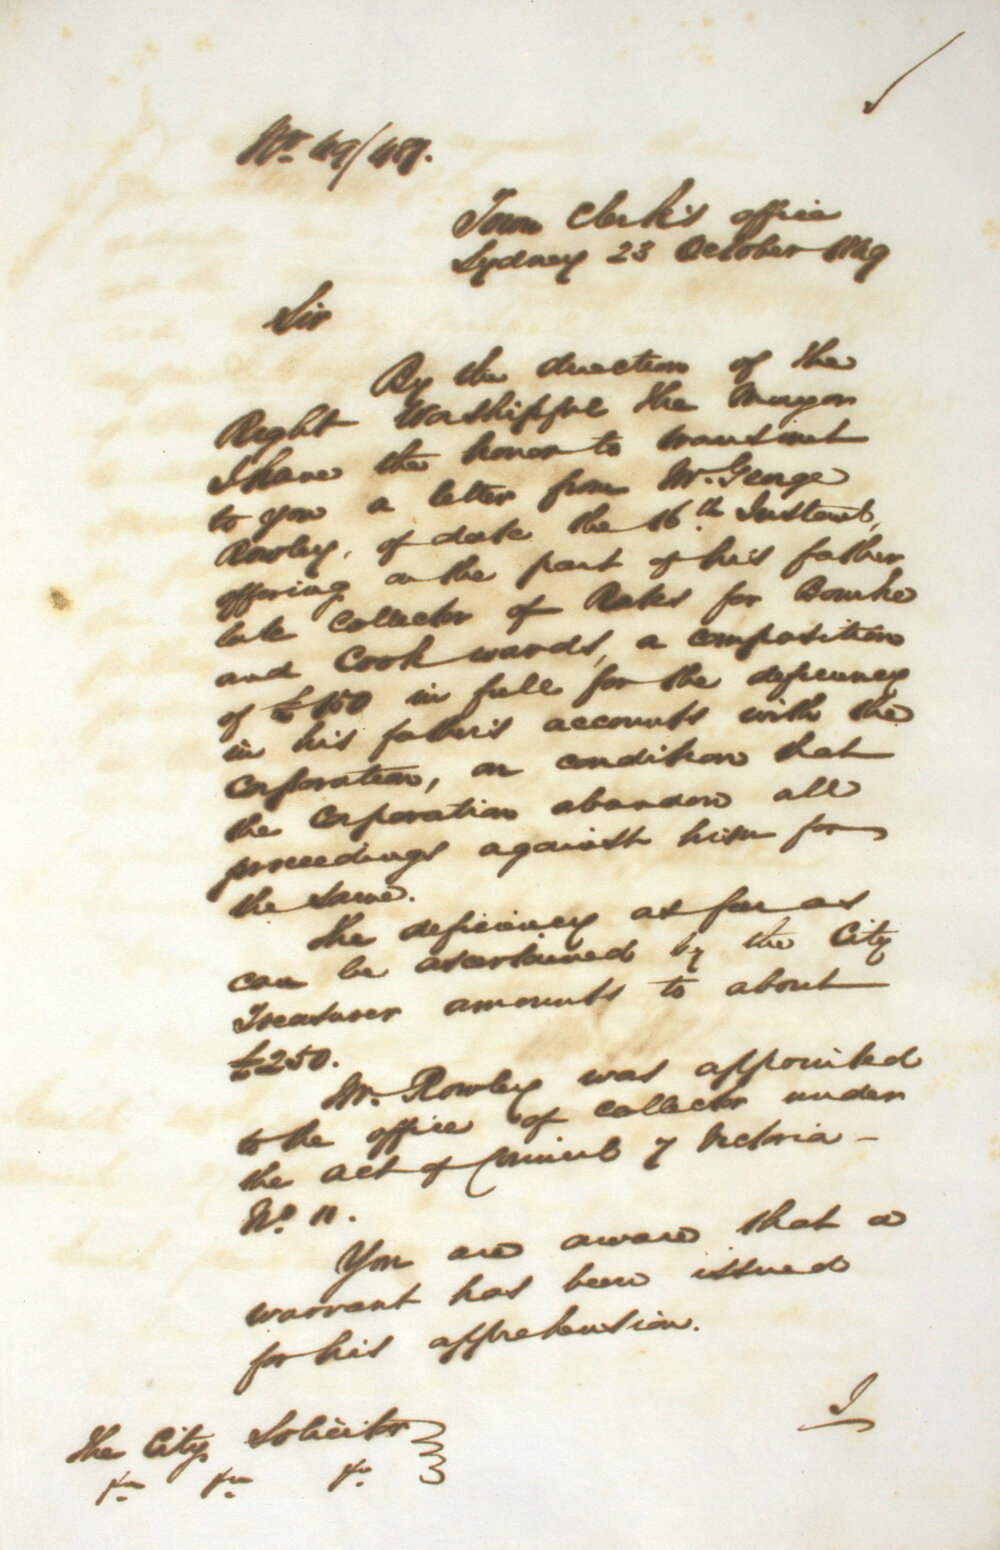 No. 49/487.
Town Clerk's office
Sydney 23 October 1849
Sir
By the direction of the
Right Worshipful the Mayor
I have the honor to transmit
to you a letter from Mr. George
Rowley, of date the 16th Instant,
offering on the part of his father
late Collector of Rates for Bourke
and Cook wards, a composition
of £150 in full for the deficiency
in his father's accounts with the
Corporation, on condition that
the Corporation abandon all
proceedings against him for
the same.
The deficiency as far as
can be ascertained by the City
Treasurer amounts to about
£250.
Mr. Rowley was appointed
to the office of Collector under
the act of Council 7 Victoria -
No. 11.
You are aware that a
warrant has been issued
for his apprehension.
I
The City Solicitor